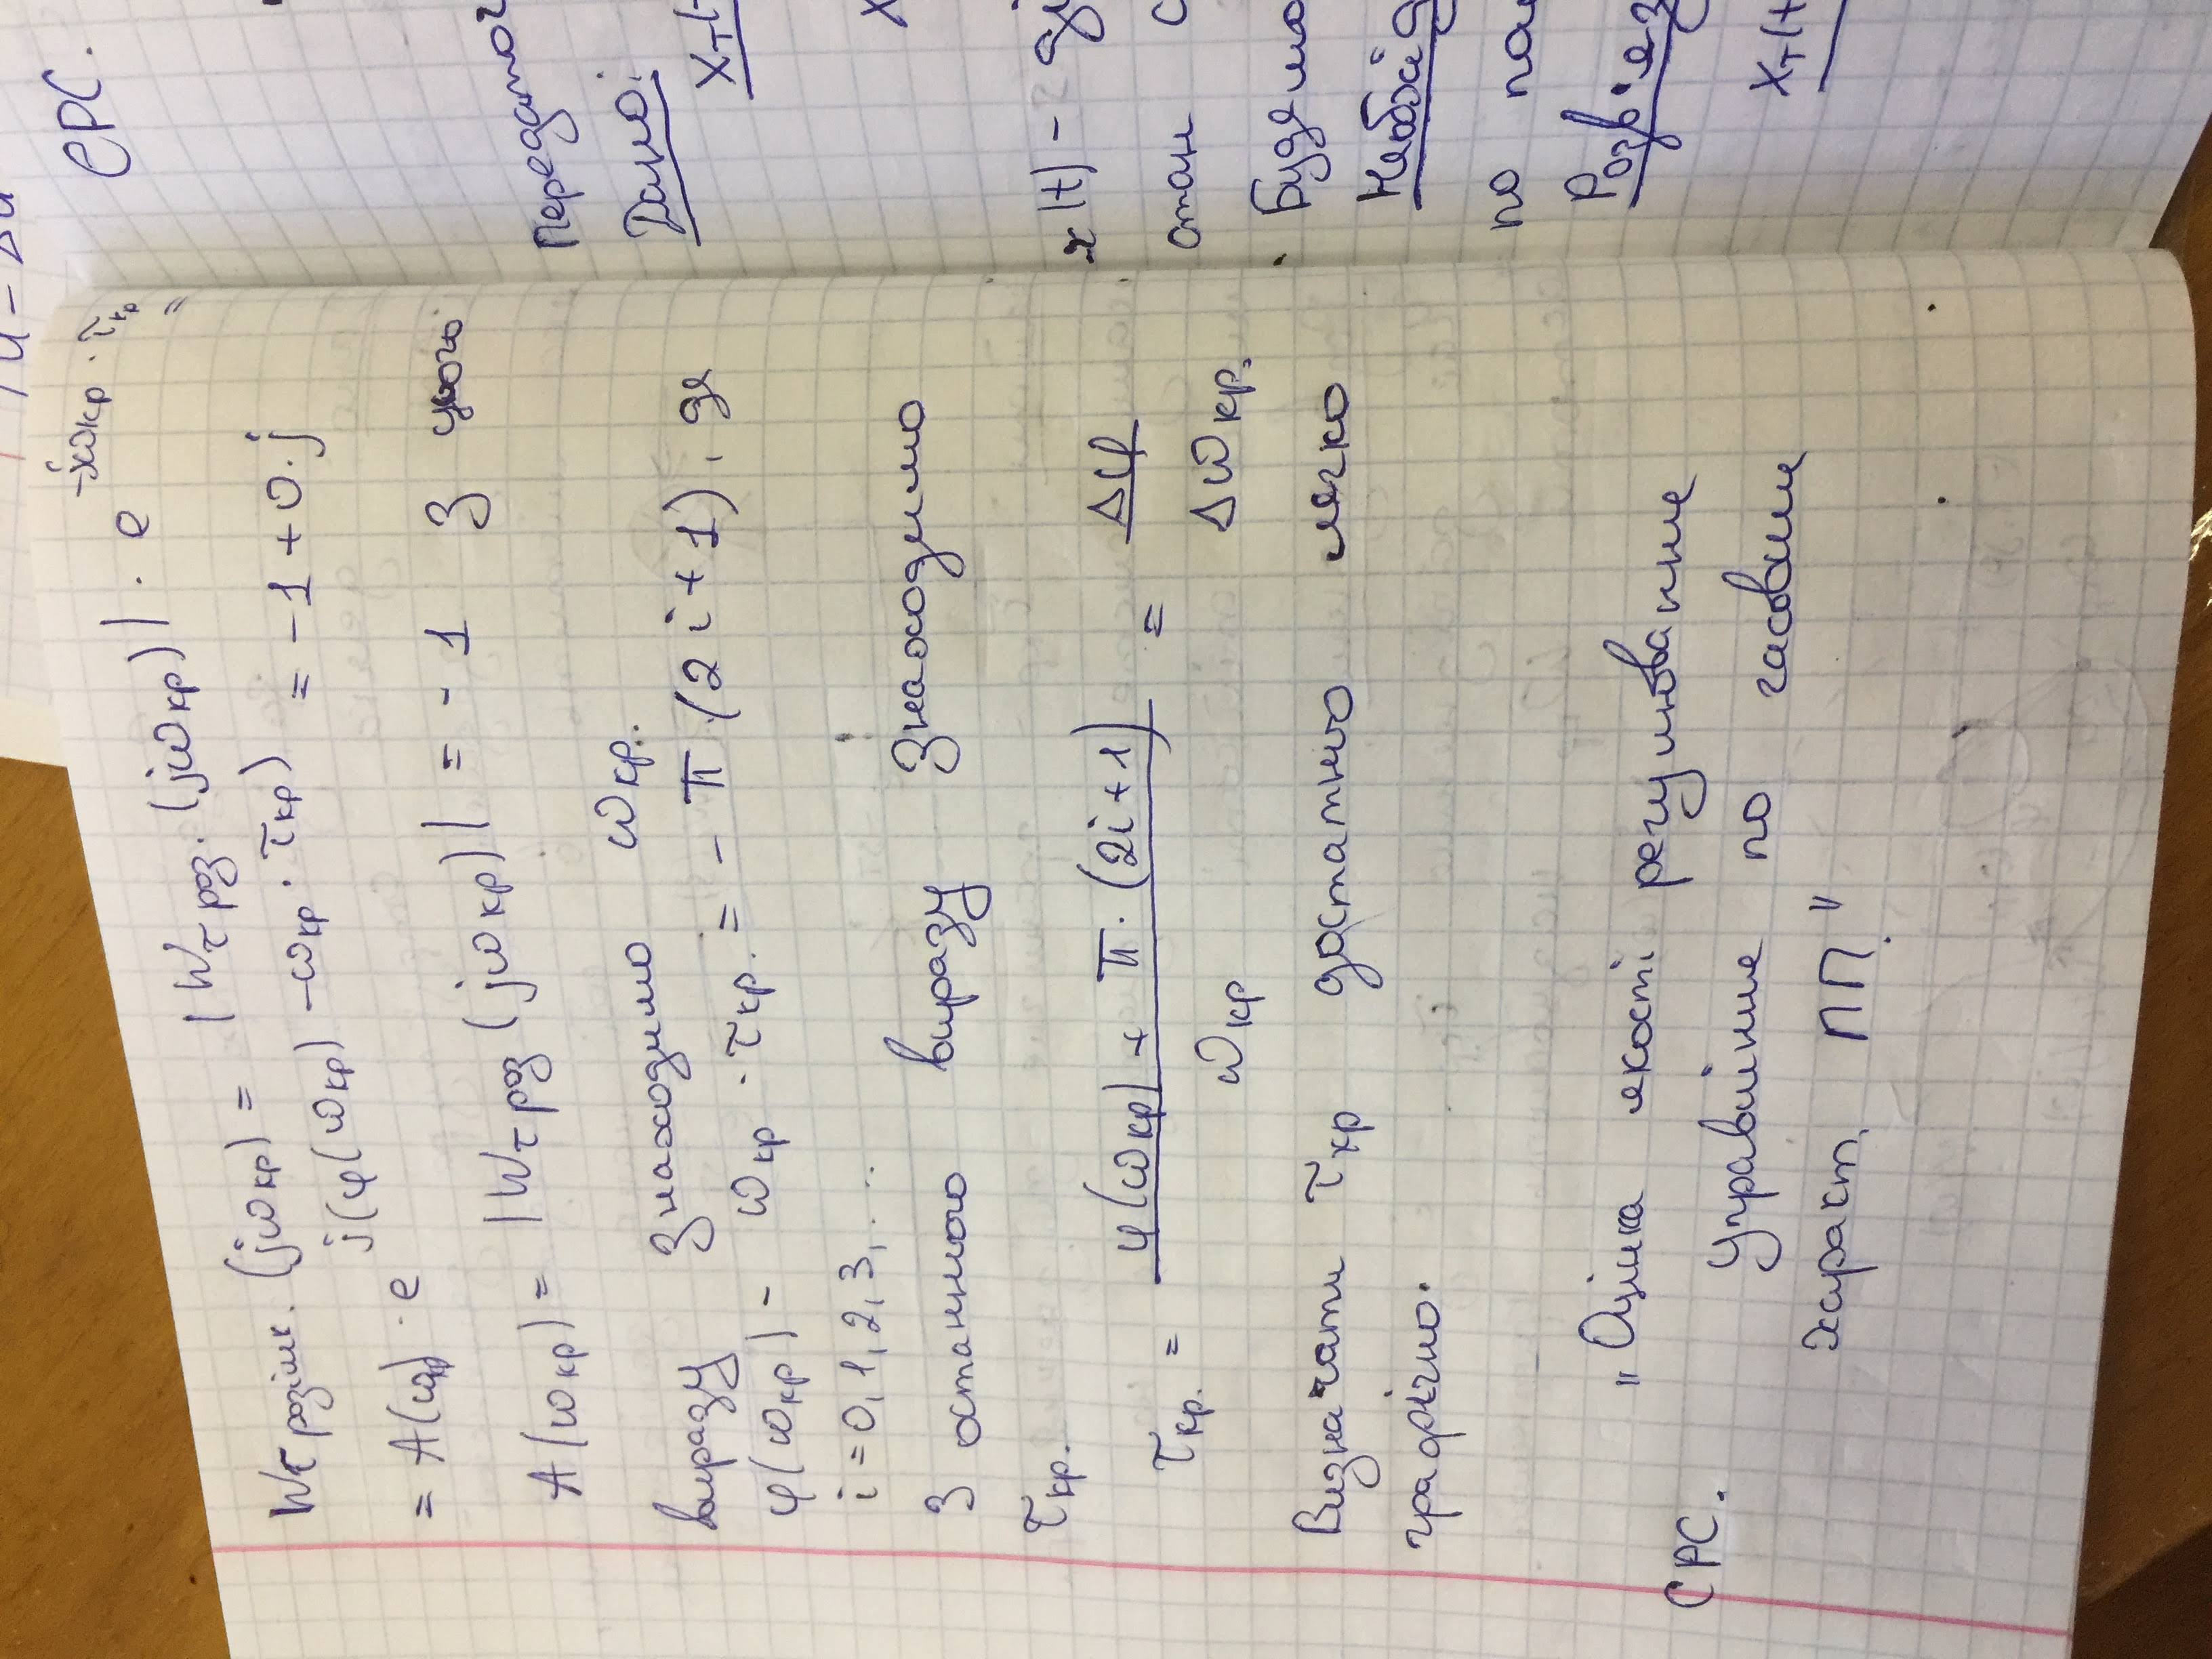 Wτ розімк. (jωкр) = |Wτ роз. (jωкр)| · e^(-jωкр · τкр) =
= A(ωкр) · e^(j(φ(ωкр) - ωкр · τкр)) = -1 + 0·j
A(ωкр) = |Wτ роз (jωкр)| = -1 З цього
виразу знаходимо ωкр..
φ(ωкр) - ωкр · τкр. = - π (2i+1), де
i = 0, 1, 2, 3, ...
З останнього виразу знаходимо
τкр.
τкр. = (φ(ωкр) + π· (2i+1)) / ωкр = Δφ / Δωкр.
Визначати τкр достатньо легко
графічно.
"Оцінка якості регулювання
СРС.
Управління по часовим
характ. ПП."
СРС.
Передаточ
Дано:
Xт(t
X
x(t) - ді
стан С
Будемо
Необхід
по
Розв'яз
Xт(t